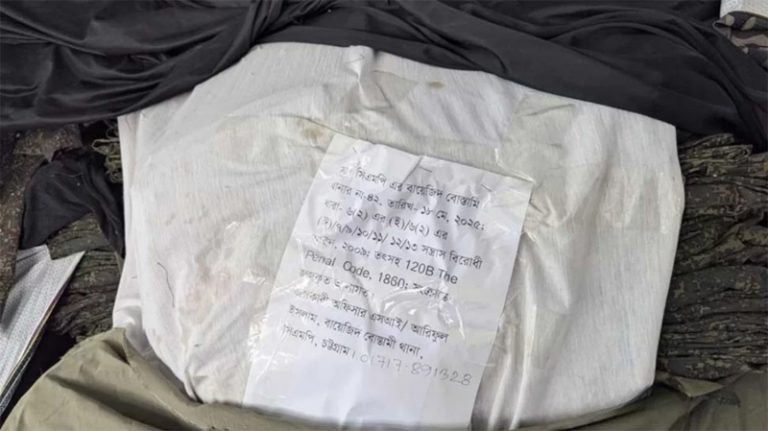 সিএমপি এর বায়েজিদ বোস্তামি
থানার না:৪২, তারিখ- ১৮ মে, ২০২৫;
ধারা- ৬(২) এর (ই)/৬(২) এর
(ঈ)/৭/৯/১০/১১/ ১২/১৩ সন্ত্রাস বিরোধী
২০০৯; তৎসহ 120B The
Penal Code, 1860;
অফিসার এসআই/ আরিফুল
ইসলাম, বায়েজিদ বোস্তামী থানা,
সিএমপি, চট্টগ্রাম। 01717-891328